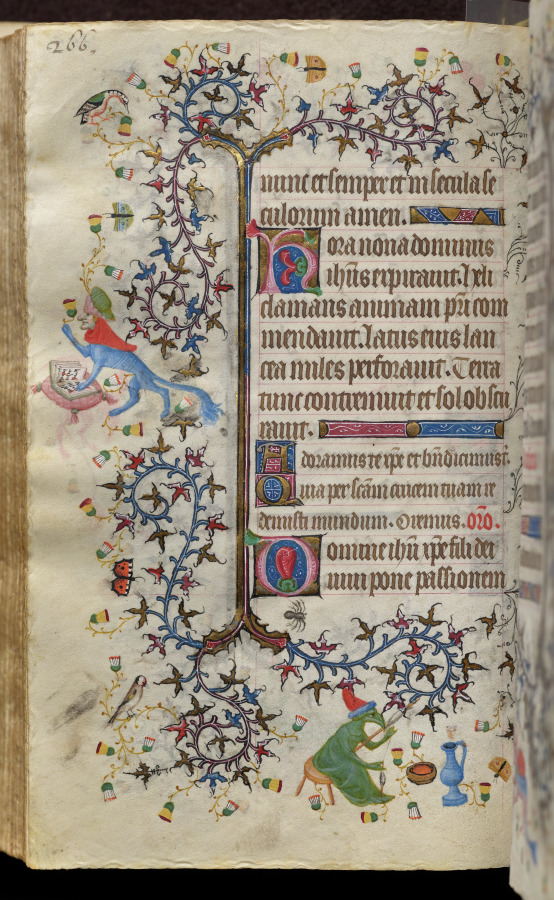 266.
nunc et semper et in secula se
culorum amen.
Hora nona dominus
ihūs expirauit. Heli
clamans animam pr̄i com
mendauit. Latus eius lan
cea miles perforauit. Terra
tunc contremuit et sol obscu
rauit.
Adoramus te xp̄e et bn̄dicimus t̄.
Quia per sc̄am crucem tuam re
demisti mundum. Oremus. or̄o.
Domine ihū xp̄e fili dei
uiui pone passionem